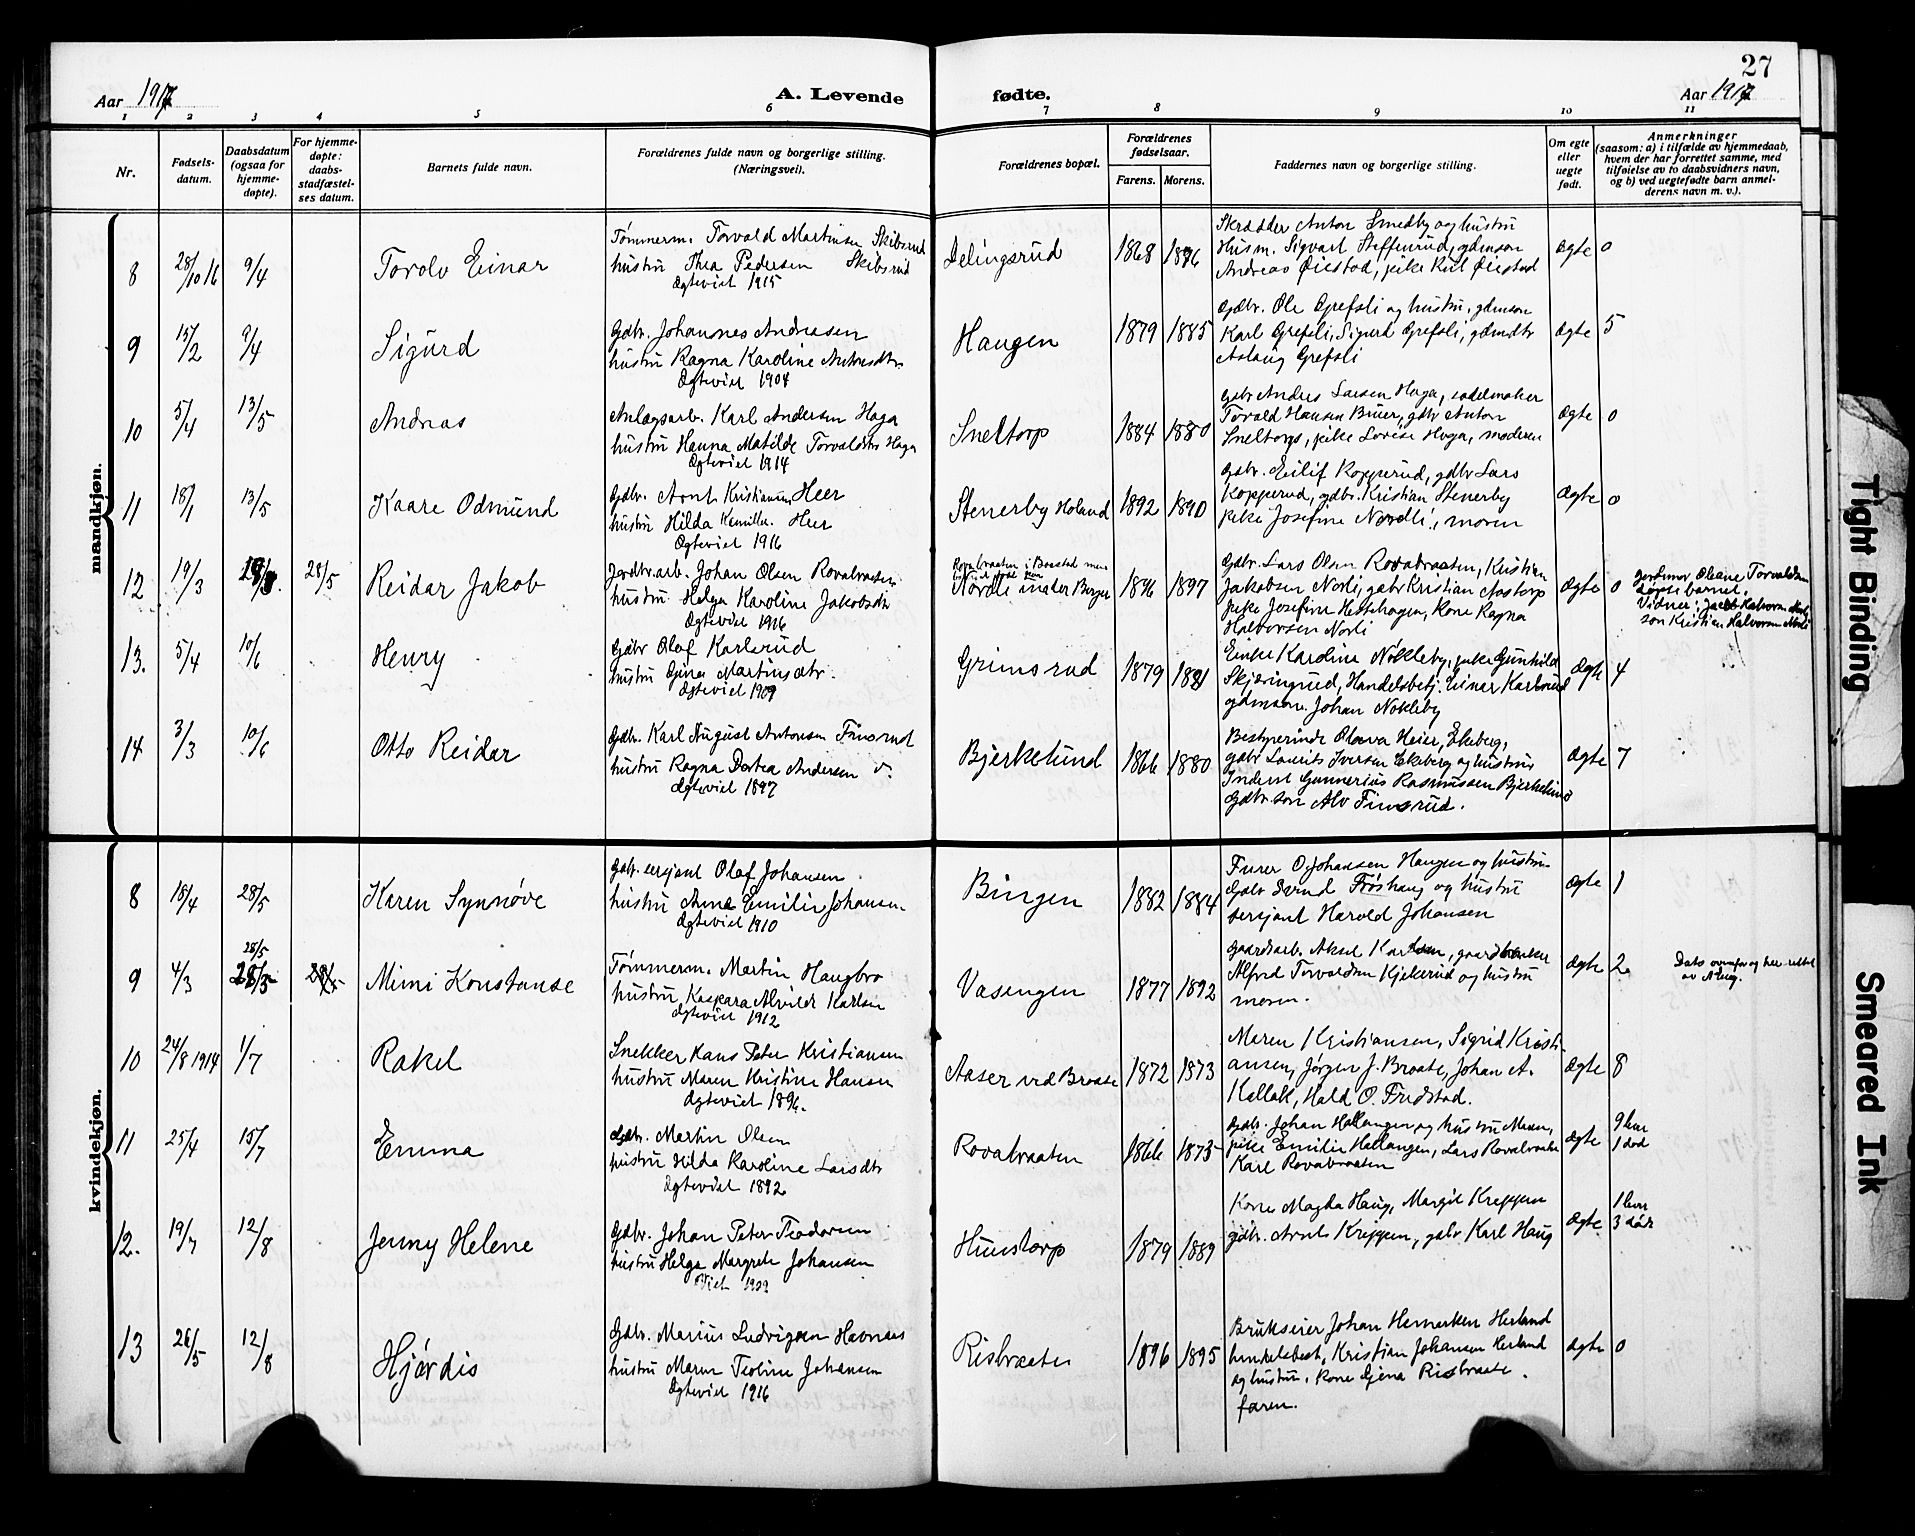 27
Aar 1917
A. Levende
fødte.
Aar 1917
1 2 3 4 5 6 7 8 9 10 11
Nr.
Fødsels-
datum.
Daabsdatum
(ogsaa for
hjemme-
døpte).
For hjemme-
døpte:
daabs-
stadfæstel-
ses datum.
Barnets fulde navn.
Forældrenes fulde navn og borgerlige stilling.
(Næringsvei).
Forældrenes bopæl.
Forældrenes
fødselsaar.
Farens. Morens.
Faddernes navn og borgerlige stilling.
Om egte
eller
uegte
født.
Anmerkninger
(saasom: a) i tilfælde av hjemmedaab,
hvem der har forrettet samme, med
tilføielse av to daabsvidners navn,
og b) ved uegtefødte barn anmel-
derens navn m. v.).
mandkjøn.
8 28/10 16 9/4 Torolv Einar
Tømmerm. Torvald Martinsen Skibsrud
hustru Thea Pedersen Skibsrud
Ægteviet 1915
Delingsrud 1868 1886
Skrædder Anton Smedby og hustru
Husm. Sigvart Steffenrud, gdmson
Andreas Øiestad, pike Øiestad
Ægte 0
9 15/2 9/4 Sigurd
Gdbr. Johannes Andreasen
hustru Ragna Karoline
Ægteviet 1904
Haugen 1879 1885
Gdbr. Ole Grefsli og hustru, gdmson
Karl Grefsli, Sigurd Grefsli, gdmdtr
Aslaug Grefsli
Ægte 5
10 5/4 13/5 Andreas
Anlægsarb. Karl Andersen Haga
hustru Hanna Matilde Torvaldsdtr Haga
Ægteviet 1914
Sneltorp 1884 1880
gdbr Andres Larsen Haga, sadelmaker
Torvald Hansen Bruer, gdbr Anton
Sneltorp, pike Lovise Haga, moderen
Ægte 0
11 18/1 13/5 Kaare Odmund
Gdbr. Arnt Kristiansen Heer
hustru Hilda Heer
Ægteviet 1916
Stenerby Høland 1892 1890
Gdbr. Eilif Kopperud, gdbr Lars
Kopperud, gdbr. Kristian Stenerby
pike Josefine Nordli, moren
Ægte 0
12 19/3 28/5 Reidar Jakob
Jordbr.arb. Johan Olsen Rovabraaten
hustru Helga Karoline Jakobsdtr
Ægteviet 1916
Rovabraaten i Baastad men
Nordli under Berger 1896 1897
Gdbr. Lars Olsen Rovabraaten, Kristian
Jakobsen Norli, gdbr Kristian Aastorp
pike Josefine Hestehagen, Kone Ragna
Halvorsen Norli
Ægte 0
Jordmor Oleane Torvaldsen
døpte barnet.
Vidner: Jacob Halvorsen Norli
son Kristian Halvorsen Norli
13. 5/4 10/6 Henry
Gdbr Olaf Karlsrud
hustru Gina Martinsdtr.
Ægteviet 1909
Grimsrud 1879 1881
Enke Karoline Nøkleby, pike Gunhild
Skjæringrud, Handelsbetj. Einar Karlsrud
gdmson. Johan Nøkleby
Ægte 4
14 3/3 10/6 Otto Reidar
Gdbr. Karl August Antonsen Finsrud
hustru Ragna Dortea Andersen
Ægteviet 1897
Bjerkelund 1866 1880
Bestyrerinde Olava Heier, Ekeberg,
gdbr Laurits Iversen Ekeberg og hustru
Inderst Gunnerius Rasmussen Bjerkelund
Gdbr. søn Alv Finsrud.
Ægte 7
kvindekjøn.
8 18/4 28/5 Karen Synnøve
Gdbr. sersjant Olaf Johansen
hustru Anna Emilie Johansen
Ægteviet 1910
Bingen 1882 1884
Furer O. Johansen Haugen og hustru
Gdbr Svend Frøshaug og hustru
sersjant Harold Johansen
Ægte 1
9 4/3 28/5 28/5 Mimi Konstanse
Tømmerm. Martin Haugbro
hustru Kaspara Alvilde Karlsen
Ægteviet 1912
Vasengen 1877 1892
gaardsarb. Aksel Karlsen, gaardbruker
Alfred Torvaldsen Kjekerud og hustru
moren.
Ægte 2.
Dato ovenfor og her rettet
av
10 24/8 1914 1/7 Rakel
Snekker Hans Peter Kristiansen
hustru Maren Kristine Hansen
Ægteviet 1896.
Aaser ved Braate 1872 1873
Maren Kristiansen, Sigrid Kristi-
ansen, Jørgen J. Braate, Johan A.
Kallak, Hald O. Fredstad.
Ægte 8
11 25/4 15/7 Emma
Gdbr. Martin Olsen
hustru Hilda Karoline Larsdtr
Ægteviet 1892
Rovabraaten 1866 1873
Gdbr. Johan Hellangen og hustru Maren,
pike Emilie Hellangen, Lars Rovabraaten
Karl Rovabraaten
Ægte 9 lever
1 død
12. 19/7 12/8 Jenny Helene
Gdbr. Johan Peter Teodorsen
hustru Helga Margrete Johansen
Viet 1909
Hunstorp 1879 1889
Kone Magda Haug, Margit Kreppen
gdbr. Arnt Kreppen, gdbr Karl Haug
Ægte. 1 lever
3 døde
13 26/5 12/8 Hjørdis
Gdbr. Marius Ludvigsen Havnaas
hustru Maren Teoline Johansen
Ægteviet 1916
Risbraaten 1896 1895
Brukseier Johan Herland
handelsbest, Kristian Johansen Herland
og hustru, Kone Gjena Risbraate.
faren.
Ægte 0
Tight Binding
Smeared Ink